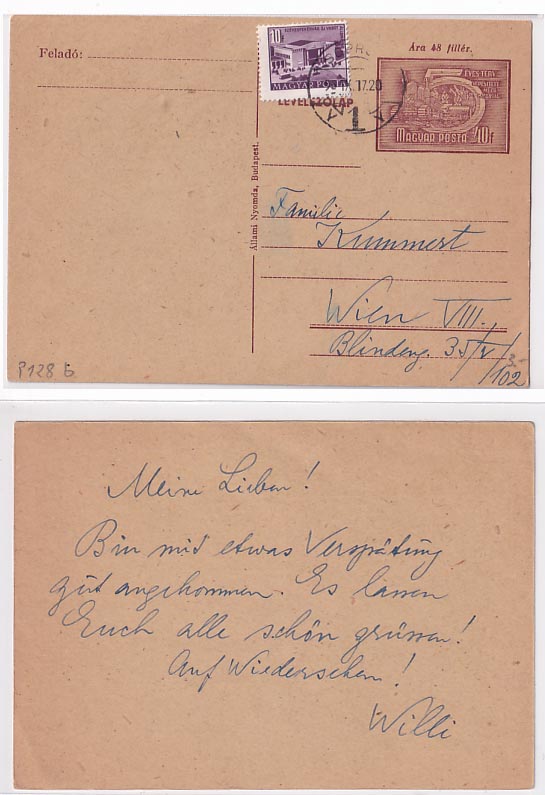 Feladó:
10f
MAGYAR POSTA
LEVELEZŐLAP
17.20
1
Ára 48 fillér.
5 ÉVES TERV
MAGYAR POSTA 40f
Állami Nyomda, Budapest.
Familie
Kummert
Wien VIII.
Blindeng. 35/V/3
/102
P128 b
Meine Lieben!
Bin mid etwas Verspätung
gut angekommen. Es lassen
Euch alle schön grüssen!
Auf Wiedersehen!
Willi